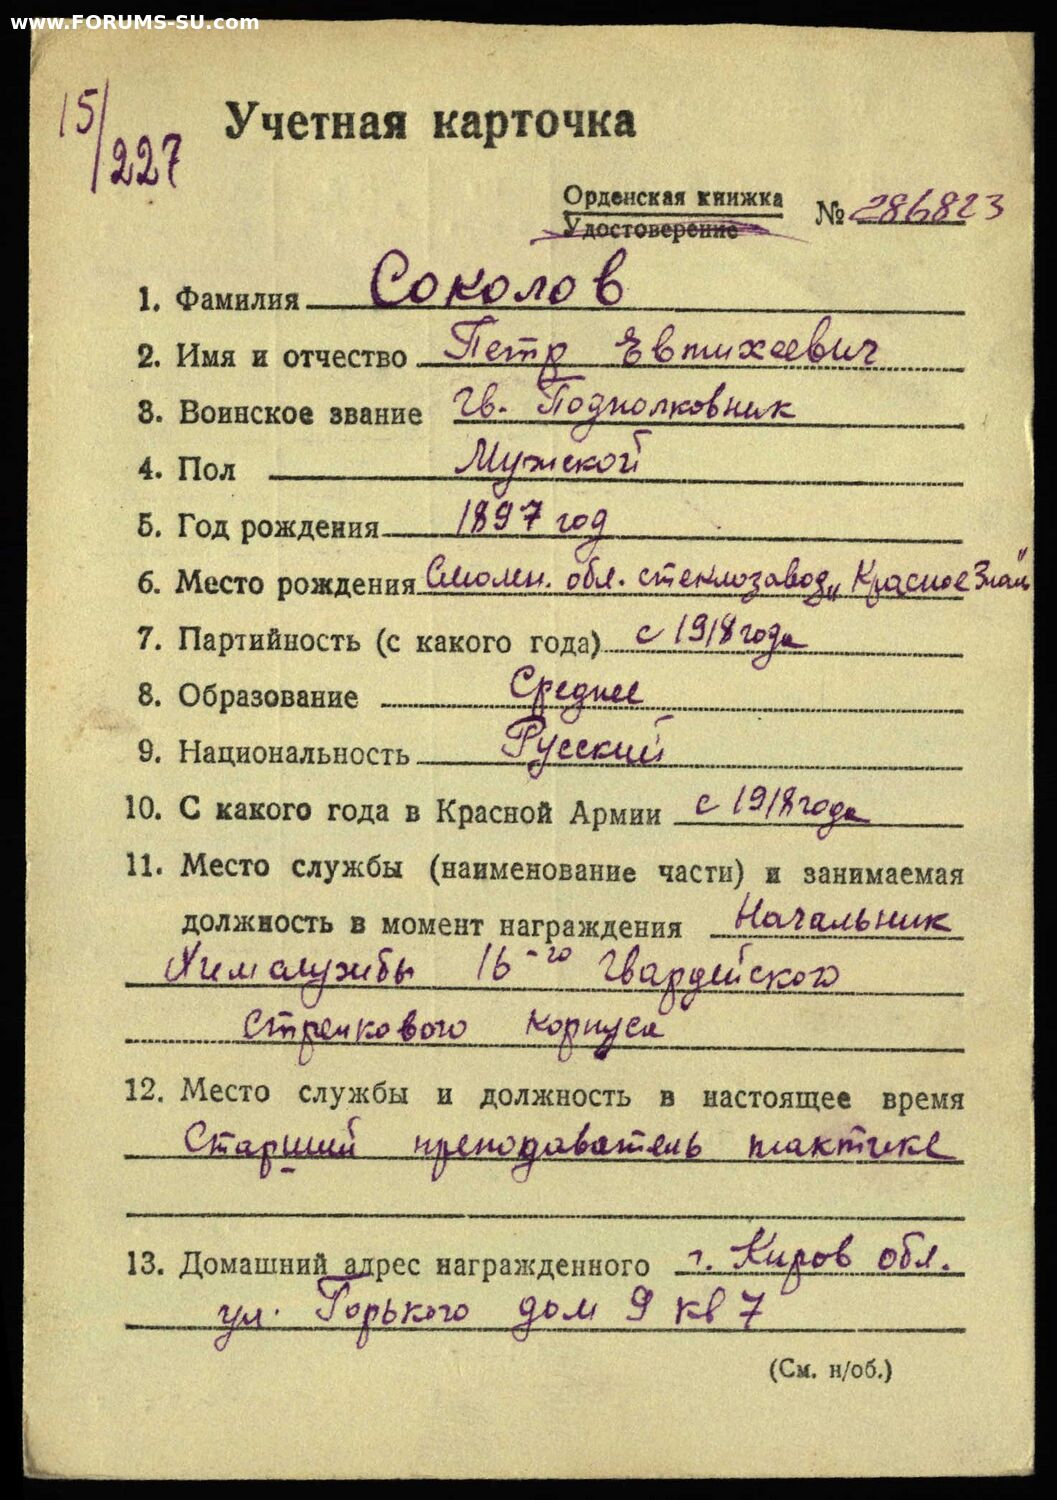 www.FORUMS-SU.com
15/227
Учетная карточка
Орденская книжка
Удостоверение
№ 286823
1. Фамилия Соколов
2. Имя и отчество Петр Евтихеевич
3. Воинское звание Гв. Подполковник
4. Пол Мужской
5. Год рождения 1897 год
6. Место рождения Смолен. обл. стеклозавод „Красное Знам"
7. Партийность (с какого года) с 1918 года
8. Образование Среднее
9. Национальность Русский
10. С какого года в Красной Армии с 1918 года
11. Место службы (наименование части) и занимаемая
должность в момент награждения Начальник
Химслужбы 16-го Гвардейского
Стрелкового Корпуса
12. Место службы и должность в настоящее время
Старший преподаватель тактике
13. Домашний адрес награжденного г. Киров обл.
ул. Горького дом 9 кв 7
(См. н/об.)